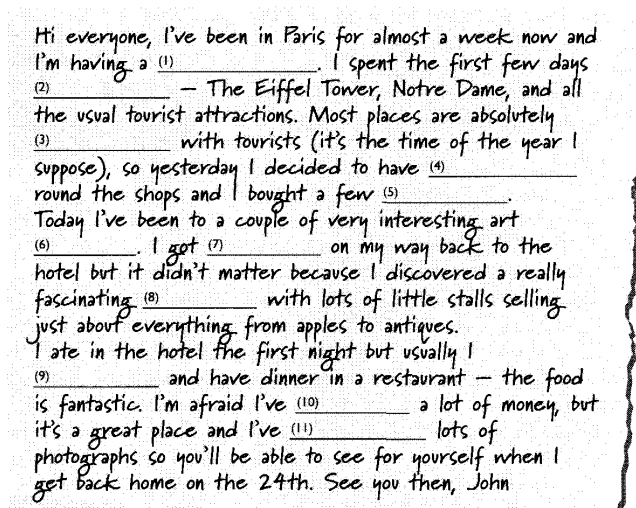 Hi everyone, I've been in Paris for almost a week now and
I'm having a (1)____________. I spent the first few days
(2)____________ – The Eiffel Tower, Notre Dame, and all
the usual tourist attractions. Most places are absolutely
(3)____________ with tourists (it's the time of the year I
suppose), so yesterday I decided to have (4)____________
round the shops and I bought a few (5)____________.
Today I've been to a couple of very interesting art
(6)____________. I got (7)____________ on my way back to the
hotel but it didn't matter because I discovered a really
fascinating (8)____________ with lots of little stalls selling
just about everything from apples to antiques.
I ate in the hotel the first night but usually I
(9)____________ and have dinner in a restaurant – the food
is fantastic. I'm afraid I've (10)____________ a lot of money, but
it's a great place and I've (11)____________ lots of
photographs so you'll be able to see for yourself when I
get back home on the 24th. See you then, John